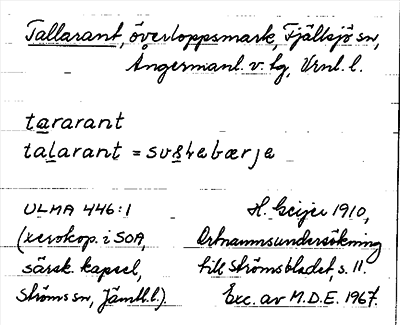 Tallarant, överloppsmark, Fjällsjö sn,
Ångermanl. v. tg, Vrnl. l.
tararant
talarant = svskebærje
ULMA 446:1
(xerokop. i SOA,
särsk. kapsel,
Ströms sn, Jämtl. l.).
H. Geijer 1910,
Ortnamnsundersökning
till Strömsbladet, s. 11.
Exc. av M.D.E. 1967.